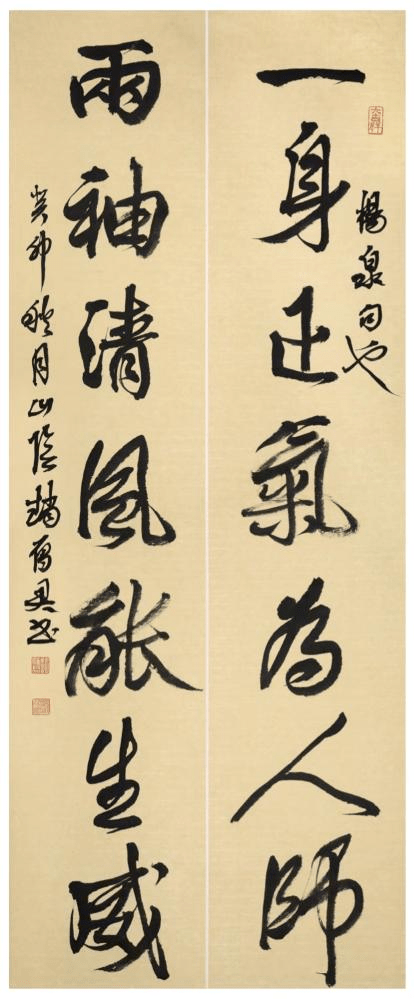 一身正氣為人師
楊泉句也
兩袖清風能生威
癸卯秋月山陰